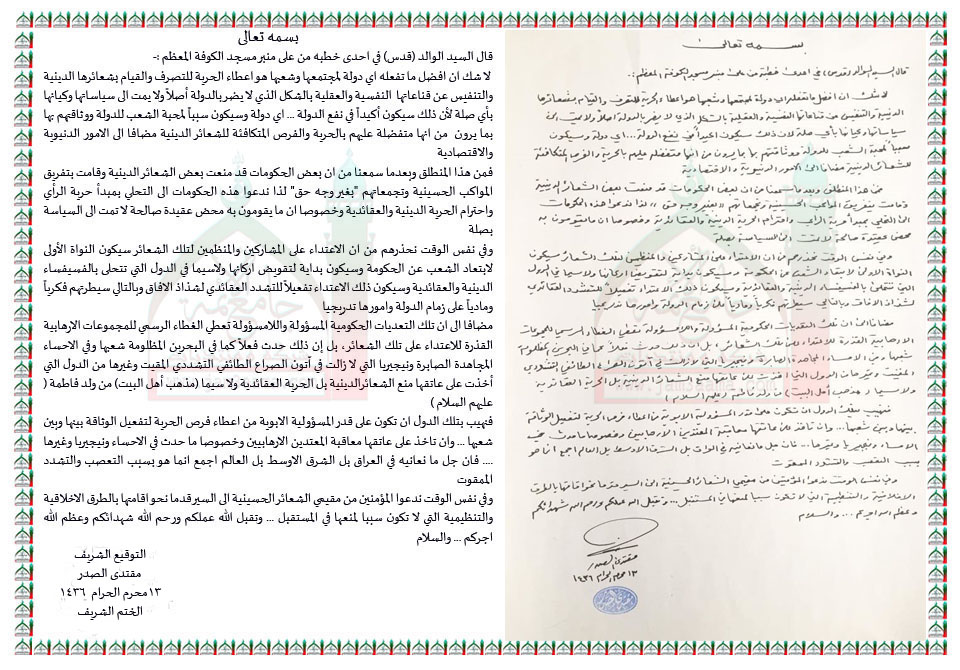 بسمه تعالى
قال السيد الوالد (قدس) في احدى خطبه من على منبر مسجد الكوفة المعظم :-
لا شك ان افضل ما تفعله اي دولة لمجتمعها وشعبها هو اعطاء الحرية للتصرف والقيام بشعائرها الدينية
والتنفيس عن قناعاتها النفسية والعقلية بالشكل الذي لا يضر بالدولة أصلاً ولا يمت الى سياساتها وكيانها
بأي صلة لأن ذلك سيكون أكيداً في نفع الدولة ... اي دولة وسيكون سبباً لمحبة الشعب للدولة ووثاقتهم بها
بما يرون من انها متفضلة عليهم بالحرية والفرص المتكافئة للشعائر الدينية مضافا الى الامور الدنيوية
والاقتصادية
فمن هذا المنطلق وبعدما سمعنا من ان بعض الحكومات قد منعت بعض الشعائر الدينية وقامت بتفريق
المواكب الحسينية وتجمعاتهم "بغير وجه حق" لذا ندعوا هذه الحكومات الى التحلي بمبدأ حرية الرأي
واحترام الحرية الدينية والعقائدية وخصوصا ان ما يقومون به محض عقيدة صالحة لا تمت الى السياسة
بصلة
وفي نفس الوقت نحذرهم من ان الاعتداء على المشاركين والمنظمين لتلك الشعائر سيكون النواة الأولى
لابتعاد الشعب عن الحكومة وسيكون بداية لتقويض اركانها ولاسيما في الدول التي تتحلى بالفسيفساء
الدينية والعقائدية وسيكون ذلك الاعتداء تفعيلاً للتشدد العقائدي لشذاذ الافاق وبالتالي سيطرتهم فكرياً
ومادياً على زمام الدولة وامورها تدريجيا
مضافا الى ان تلك التعديات الحكومية المسؤولة واللامسؤولة تعطي الغطاء الرسمي للمجموعات الارهابية
القذرة للاعتداء على تلك الشعائر، بل إن ذلك حدث فعلاً كما في البحرين المظلومة شعبها وفي الاحساء
المجاهدة الصابرة ونيجيريا التي لا زالت في أتون الصراع الطائفي التشددي المقيت وغيرها من الدول التي
أخذت على عاتقها منع الشعائرالدينية بل الحرية العقائدية ولا سيما (مذهب أهل البيت) من ولد فاطمة (
عليهم السلام )
فنهيب بتلك الدول ان تكون على قدر المسؤولية الابوية من اعطاء فرص الحرية لتفعيل الوثاقة بينها وبين
شعبها ... وان تاخذ على عاتقها معاقبة المعتدين الارهابيين وخصوصا ما حدث في الاحساء ونيجيريا وغيرها
.... فان جل ما نعانيه في العراق بل الشرق الاوسط بل العالم اجمع انما هو بسبب التعصب والتشدد
الممقوت
وفي نفس الوقت ندعوا المؤمنين من مقيمي الشعائر الحسينية الى السير قدما نحو اقامتها بالطرق الاخلاقية
والتنظيمية التي لا تكون سببا لمنعها في المستقبل ... وتقبل الله عملكم ورحم الله شهدائكم وعظم الله
اجركم ... والسلام
التوقيع الشريف
مقتدى الصدر
١٣ محرم الحرام ١٤٣٦
الختم الشريف
بسمه تعالى
قال السيد الوالد (قدس) في احدى خطبه من على منبر مسجد الكوفة المعظم :-
لا شك ان افضل ما تفعله اي دولة لمجتمعها وشعبها هو اعطاء الحرية للتصرف والقيام بشعائرها
الدينية والتنفيس عن قناعاتها النفسية والعقلية بالشكل الذي لا يضر بالدولة أصلاً ولا يمت الى
سياساتها وكيانها بأي صلة لأن ذلك سيكون أكيداً في نفع الدولة ... اي دولة وسيكون
سبباً لمحبة الشعب للدولة ووثاقتهم بها بما يرون من انها متفضلة عليهم بالحرية والفرص المتكافئة
للشعائر الدينية مضافا الى الامور الدنيوية والاقتصادية
فمن هذا المنطلق وبعدما سمعنا من ان بعض الحكومات قد منعت بعض الشعائر الدينية
وقامت بتفريق المواكب الحسينية وتجمعاتهم "بغير وجه حق" لذا ندعوا هذه الحكومات
الى التحلي بمبدأ حرية الرأي واحترام الحرية الدينية والعقائدية وخصوصا ان ما يقومون به
محض عقيدة صالحة لا تمت الى السياسة بصلة
وفي نفس الوقت نحذرهم من ان الاعتداء على المشاركين والمنظمين لتلك الشعائر سيكون
النواة الأولى لابتعاد الشعب عن الحكومة وسيكون بداية لتقويض اركانها ولا سيما في الدول
التي تتحلى بالفسيفساء الدينية والعقائدية وسيكون ذلك الاعتداء تفعيلاً للتشدد العقائدي
لشذاذ الافاق وبالتالي سيطرتهم فكرياً ومادياً على زمام الدولة وامورها تدريجيا
مضافا الى ان تلك التعديات الحكومية المسؤولة واللامسؤولة تعطي الغطاء الرسمي للمجموعات
الارهابية القذرة للاعتداء على تلك الشعائر، بل ان ذلك حدث فعلاً كما في البحرين المظلومة
شعبها وفي الاحساء المجاهدة الصابرة ونيجيريا التي لا زالت في أتون الصراع الطائفي التشددي
المقيت وغيرها من الدول التي أخذت على عاتقها منع الشعائر الدينية بل الحرية العقائدية
ولا سيما (مذهب أهل البيت) من ولد فاطمة (عليهم السلام)
فنهيب بتلك الدول ان تكون على قدر المسؤولية الابوية من اعطاء فرص الحرية لتفعيل الوثاقة
بينها وبين شعبها ... وان تاخذ على عاتقها معاقبة المعتدين الارهابيين وخصوصا ما حدث في
الاحساء ونيجيريا وغيرها ... فان جل ما نعانيه في العراق بل الشرق الاوسط بل العالم اجمع انما هو
بسبب التعصب والتشدد الممقوت
وفي نفس الوقت ندعوا المؤمنين من مقيمي الشعائر الحسينية الى السير قدما نحو اقامتها بالطرق
الاخلاقية والتنظيمية التي لا تكون سببا لمنعها في المستقبل ... وتقبل الله عملكم ورحم الله شهدائكم
وعظم الله اجركم ... والسلام
مقتدى الصدر
١٣ محرم الحرام ١٤٣٦